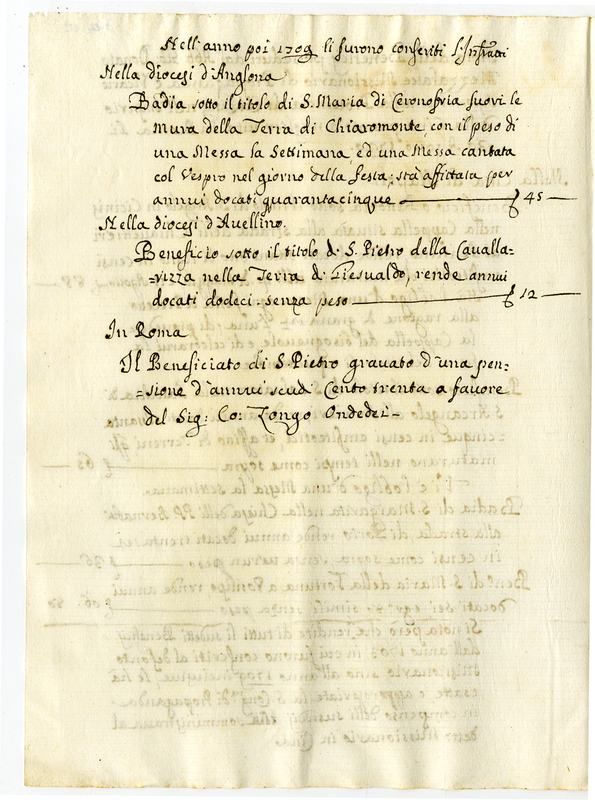 Nell'anno poi 1709 li furono conferiti l'Infratti
Nella diocesi d'Anglona
Badia sotto il titolo di S. Maria di Ceronofria fuori le
mura della Terra di Chiaromonte, con il peso di
una Messa la Settimana ed una Messa cantata
col Vespro nel giorno della festa; sta affittata per
annui docati quarantacinque 45
Nella diocesi d'Avellino.
Beneficio sotto il titolo di S. Pietro della Cavalla=
=rizza nella Terra di Giesualdo, rende annui
docati dodeci. senza peso 12
In Roma
Il Beneficiato di S. Pietro gravato d'una pen=
=sione d'annui scudi Cento trenta a favore
del Sig: Co: Zongo Ondedei